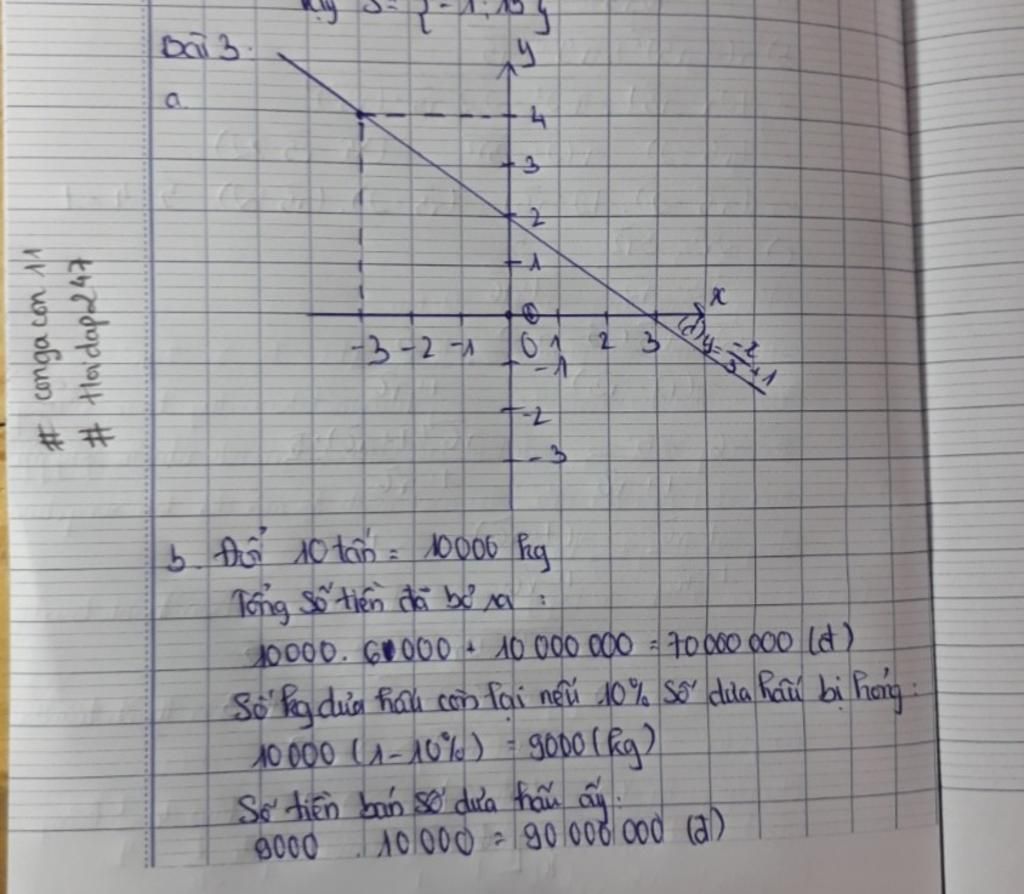 Vậy S = { -1; 15 }
Bài 3.
a
y
4
3
2
1
x
-3 -2 -1 0 1 2 3
(d) y = -2/3 + 1
-1
-2
-3
b. Đổi 10 tấn = 10000 kg
Tổng số tiền đã bỏ ra :
10000. 6000 + 10 000 000 = 70 000 000 (đ)
Số kg dưa hấu còn lại nếu 10% số dưa hấu bị hỏng :
10 000 (1 - 10%) = 9000 (kg)
Số tiền bán số dưa hấu ấy:
9000 . 10 000 = 90 000 000 (đ)
# congacon 11
# Hoidap247